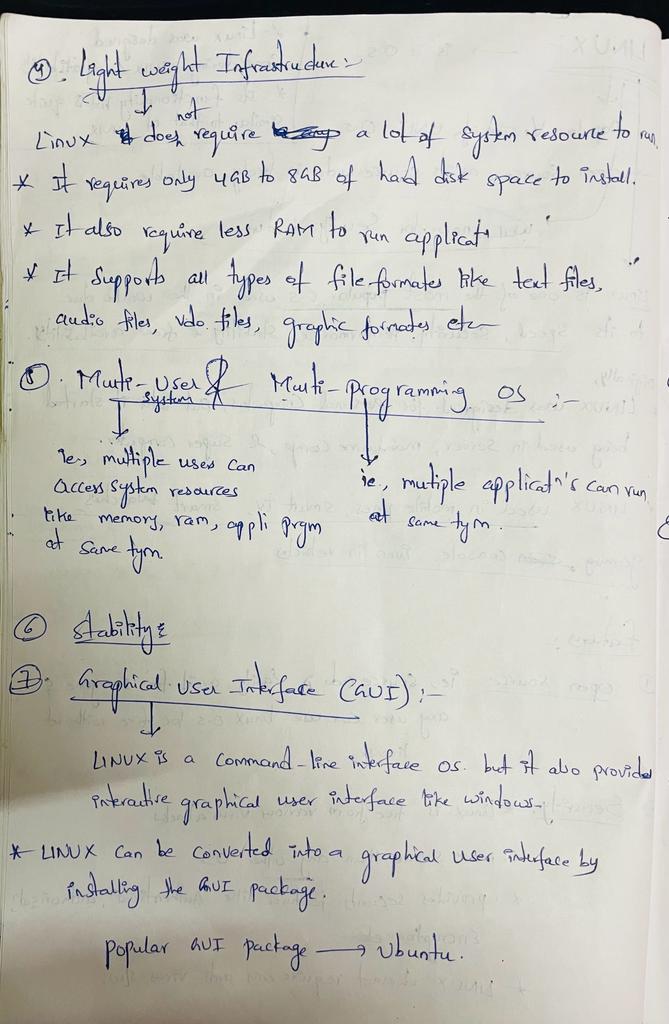 ④. Light weight Infrastructure :-
not
Linux does require a lot of system resource to run
* It requires only 4GB to 8GB of hard disk space to install.
* It also require less RAM to run applicatⁿ
* It Supports all types of file formates like text files,
audio files, vdo files, graphic formates etc
⑤. Multi-User & Multi-Programming OS :-
System
ie, multiple uses can
access system resources
like memory, ram, appli prgm
at same tym.
ie., mutiple applicatⁿ's can run
at same tym.
⑥ Stability :
⑦. Graphical User Interface (GUI) :-
LINUX is a command-line interface OS. but it also provides
interactive graphical user interface like windows.
* LINUX can be converted into a graphical user interface by
installing the GUI package.
popular GUI package → Ubuntu.